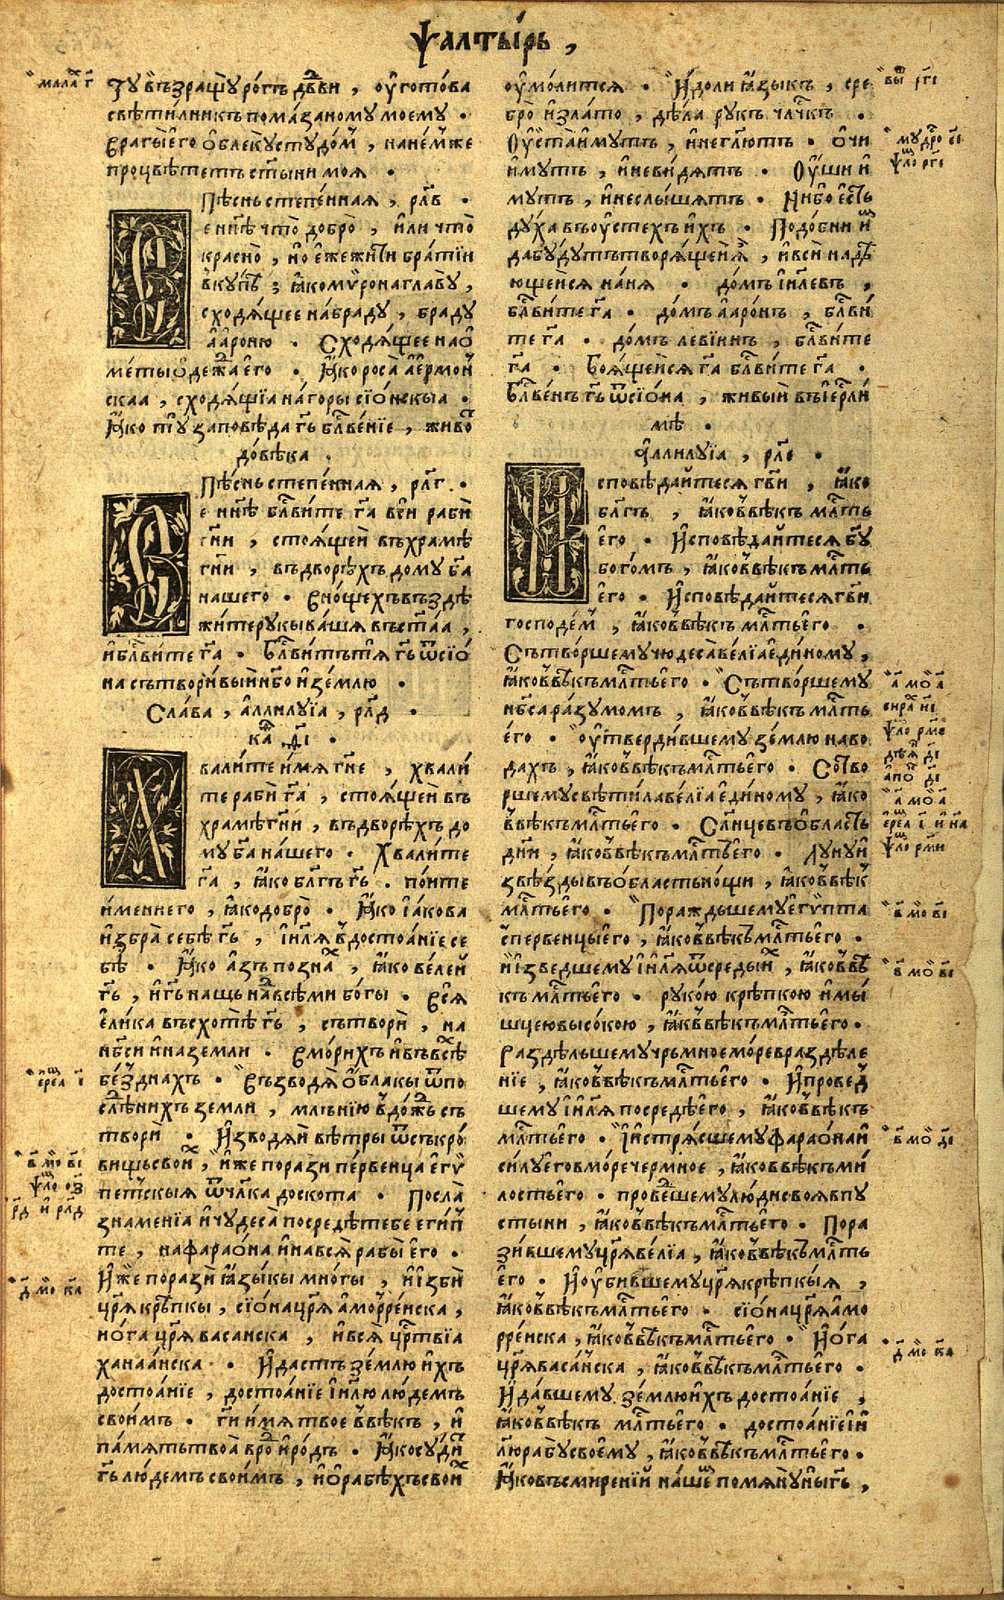 Ѱалти́рь,
мала҃ г҃
зу възращу̀ ро́гъ дв҃дви, оу҆гото́ва
свѣти́лникъ пома́заному моему̀.
Врагы̀ е҆го ѻ҆блеку̀ студо́м, на не́мже
процвѣте́тъ ст҃ы́ни моя̀.
Пѣ́снь степе́нная, рл҃в.
Се нн҃ѣ что̀ добро̀, и҆ли что̀
красно̀, но̀ е҆же жи́ти бра́тїи
вку́пѣ; ꙗ҆ко мѵ́ро на главу̀,
сходя́щее на браду̀, браду̀
а҆аро́ню. Сходя́щее на ѻ҆
ме́ты ѻ҆де́жа е҆го. Ꙗ҆ко роса̀ а҆ермо́н
скаа, сходя́щїа на го́ры сїо́нскыа.
Ꙗ҆ко тꙋ̀ заповѣ́да гь҃ блгⷭ҇ве́нїе, живо́т
до вѣ́ка.
Пѣ́снь степе́нная, рл҃г.
Се нн҃ѣ блгⷭ҇ви́те гⷭ҇а всѝ рабѝ
гн҃и, стоя́щеи въ хра́мѣ
гн҃и, въ дво́рѣхъ до́му бг҃а
на́шего. В но́щехъ въздѣ
жи́те ру́кы ва́шя въ ст҃а́а,
и҆ блгⷭ҇ви́те гⷭ҇а. Блгⷭ҇ви́тъ тя̀ гь҃ ѿ сїо́
на сътвори́вый нб҃о и҆ зе́млю.
Сла́ва, а҆ллилу́їа, рл҃д
ка҃ ,д҃і.
Хвали́те и҆́мя гн҃е, хвали́
те рабѝ гⷭ҇а, стоя́щеи въ
хра́мѣ гн҃и, въ дво́рѣхъ до́
му бг҃а на́шего. Хвали́те
гⷭ҇а, ꙗ҆ко бл҃гъ гь҃. по́ите
и҆́мени е҆го, ꙗ҆ко добро̀. Ꙗ҆ко і҆а́кова
и҆збра̀ себѣ̀ гь҃, і҆и҃ля в достоа́нїе се
бѣ̀. Ꙗ҆ко а҆́зъ позна́х, ꙗ҆ко ве́лей
гь҃, и҆ гь҃ на́шь над всѣ́ми бо́гы. Вся̀
е҆ли́ка въсхотѣ̀ гь҃, сътворѝ, на
нб҃си и҆ на землѝ. В мо́рихъ и҆ въ всѣ́х
бе́зднахъ. Възводя̀ ѻ҆́блакы ѿ по
слѣ́днихъ землѝ, мль́нїю в до́ждь съ
творѝ. И҆зводя́й вѣ́тры ѿ съкро́
вищь свои́х, и҆́же поразѝ пе́рвенца е҆гѵ́
петскыя ѿ чл҃ка до скота. Посла̀
знаме́нїа и҆ чюдеса̀ посредѣ̀ тебе е҆ги́п
те, на фарао́на и҆ на вся̀ рабы̀ е҆го.
И҆́же поразѝ ꙗ҆зы́кы мно́гы, и҆ и҆збѝ
цр҃я крѣ́пкы, сїо́на цр҃я а҆морре́нска,
и҆ о́га цр҃я васа́нска, и҆ вся̀ црⷭ҇твїа
ханаа́нска. И҆ да́стъ зе́млю и҆́хъ
достоа́нїе, достоа́нїе і҆и҃лю лю́демъ
свои́мъ. гн҃и и҆́мя твоѐ в вѣ́къ, и҆
па́мять твоа̀ в ро́д и҆ ро́дъ. Ꙗ҆ко су́дит
гь҃ лю́демъ свои́мъ, и҆ о рабѣ́хъ свои́х
е҆рем і҃
в҃ мо ві҃
ѱло оз҃
рд҃ и рл҃д
д҃ мо ка҃
оу҆мо́лится. И҆́доли ꙗ҆зы́къ, сре
бро̀ и҆ зла́то, дѣ́ла ру́къ чл҃чкъ.
Оу҆ста̀ и҆́мутъ, и҆ не гл҃ютъ. о҆́чи
и҆́мутъ, и҆ не ви́дятъ. Оу҆́ши и҆́
мутъ, и҆ не слы́шятъ. Ни́бо е҆́сть
ду́ха въ оу҆сте́хъ и҆́хъ. Подо́бни и҆м
да бу́дутъ творя́щеи я҆̀, и҆ всѝ надѣ́
ющеися на ня. до́мъ і҆и҃левъ,
блгⷭ҇ви́те гⷭ҇а. до́мъ а҆аро́нъ, блгⷭ҇ви́
те гⷭ҇а. до́мъ леви́инъ, блгⷭ҇ви́те
гⷭ҇а. Боя́щеися гⷭ҇а блгⷭ҇ви́те гⷭ҇а.
Блгⷭ҇ве́нъ гь҃ ѿ сїо́на, живы́й въ і҆ерⷭ҇ли
мѣ̀.
А҆ллилу́їа, рл҃е.
Исповѣ́дайтеся гв҃и, ꙗ҆ко
бл҃гъ, ꙗ҆ко в вѣ́къ млⷭ҇ть
е҆го. И҆сповѣ́дайтеся бг҃у
бого́мъ, ꙗ҆ко в вѣ́къ млⷭ҇ть
е҆го. И҆сповѣ́дайтеся гв҃и
господе́м, ꙗ҆ко в вѣ́къ млⷭ҇ть е҆го.
Сътво́ршему чюдеса̀ ве́лїа е҆ди́ному,
ꙗ҆ко в вѣ́къ млⷭ҇ть е҆го. Сътво́ршему
нб҃са ра́зумомъ, ꙗ҆ко в вѣ́къ млⷭ҇ть
е҆го. оу҆тверди́вшему зе́млю на во
да́хъ, ꙗ҆ко в вѣ́къ млⷭ҇ть е҆го. Сотво́
ршему свѣти́ла ве́лїа е҆ди́ному, ꙗ҆ко
в вѣ́къ млⷭ҇ть е҆го. Сл҃нце въ ѻ҆́бласть
дни́, ꙗ҆ко в вѣ́къ млⷭ҇ть е҆го. Луну̀ и҆
звѣ́зды въ ѻ҆́бласть но́щи, ꙗ҆ко в вѣ́к
млⷭ҇ть е҆го. Пора́ждьшему е҆гѵ́пта
с пе́рвенцы е҆го, ꙗ҆ко в вѣ́къ млⷭ҇ть е҆го.
И҆ и҆зве́дшему і҆и҃ля ѿ среды̀ и҆́х, ꙗ҆ко в вѣ́
къ млⷭ҇ть е҆го. руко́ю крѣ́пкою и҆ мы́
шцею высо́кою, ꙗ҆ко в вѣ́къ млⷭ҇ть е҆го.
Раздѣ́льшему чрьмное мо́ре в раздѣле
нїе, ꙗ҆ко в вѣ́къ млⷭ҇ть е҆го. И҆ прове́д
шему і҆и҃ля посредѣ̀ е҆го, ꙗ҆ко в вѣ́къ
млⷭ҇ть е҆го. И҆ стря́сшему фарао́на и҆
си́лу е҆го в мо́ре чермно́е, ꙗ҆ко в вѣ́къ ми́
лость е҆го. прове́дшему лю́ди своя̀ в пу
сты́ни, ꙗ҆ко в вѣ́къ млⷭ҇ть е҆го. Пора
зи́вшему цр҃я ве́лїа, ꙗ҆ко в вѣ́къ млⷭ҇ть
е҆го. И҆ оу҆би́вшему цр҃я крѣ́пкыя,
ꙗ҆ко в вѣ́къ млⷭ҇ть е҆го. сїо́на цр҃я а҆мо
рре́нска, ꙗ҆ко в вѣ́къ млⷭ҇ть е҆го. И҆ о́га
цр҃я васа́нска, ꙗ҆ко в вѣ́къ млⷭ҇ть е҆го.
И҆ да́вшему зе́млю и҆́хъ достоа́нїе,
ꙗ҆ко в вѣ́къ млⷭ҇ть е҆го. достоа́нїе і҆и҃
лю рабу̀ своему̀, ꙗ҆ко в вѣ́къ млⷭ҇ть е҆го.
Ꙗ҆ко въ смире́нїи на́шем помяну̀ ны гь҃,
вы рг҃і
му́дро е҃і
ѱло рг҃і
а҃ мо а҃
сира н҃і
ѱло рм҃е
дѣя д҃і
апо д҃і
а҃ мо а҃
е҆рем і҃ и҆ на
ѱло рм҃и
в҃ мо в҃і
в҃ мо в҃і
в҃ мо д҃і
д҃ мо ка҃